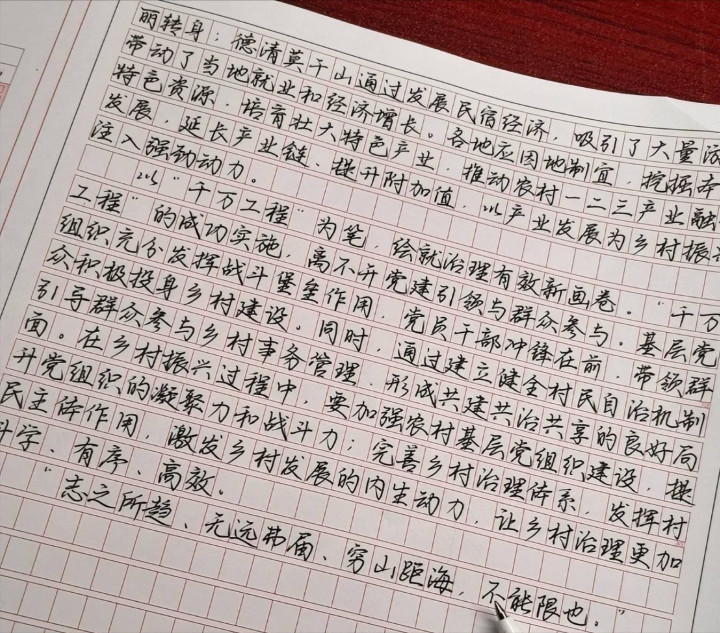 丽转身；德清莫干山通过发展民宿经济，吸引了大量游
带动了当地就业和经济增长。各地应因地制宜，挖掘本
特色资源，培育壮大特色产业，推动农村一二三产业融
发展，延长产业链、提升附加值，以产业发展为乡村振
注入强劲动力。
以“千万工程”为笔，绘就治理有效新画卷。“千万
工程”的成功实施，离不开党建引领与群众参与。基层党
组织充分发挥战斗堡垒作用，党员干部冲锋在前，带领群
众积极投身乡村建设。同时，通过建立健全村民自治机制
引导群众参与乡村事务管理，形成共建共治共享的良好局
面。在乡村振兴过程中，要加强农村基层党组织建设，提
升党组织的凝聚力和战斗力；完善乡村治理体系，发挥村
民主体作用，激发乡村发展的内生动力，让乡村治理更加
科学、有序、高效。
“志之所趋，无远弗届，穷山距海，不能限也。”